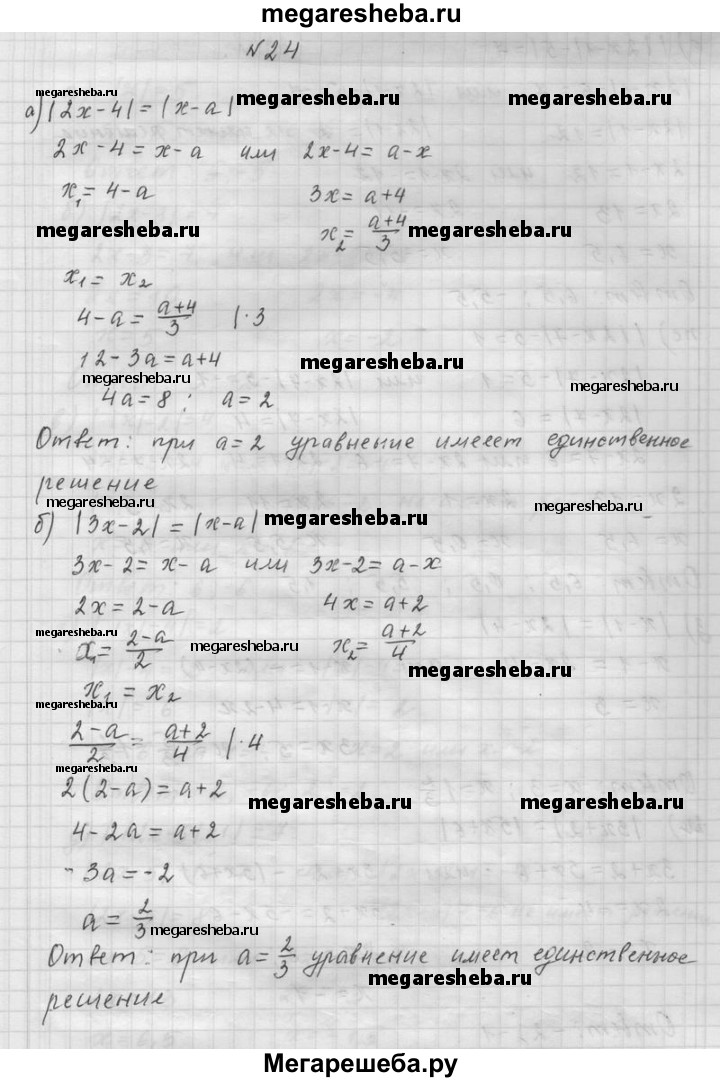 megaresheba.ru
№24
megaresheba.ru
а) |2x-4| = |x-a| megaresheba.ru megaresheba.ru
2x-4 = x-a или 2x-4 = a-x
x₁ = 4-a 3x = a+4
megaresheba.ru x₂ = (a+4)/3 megaresheba.ru
x₁ = x₂
4-a = (a+4)/3 |·3
12-3a = a+4 megaresheba.ru
megaresheba.ru megaresheba.ru
4a = 8; a = 2
Ответ: при a=2 уравнение имеет единственное
решение
megaresheba.ru megaresheba.ru
б) |3x-2| = |x-a| megaresheba.ru
3x-2 = x-a или 3x-2 = a-x
2x = 2-a 4x = a+2
megaresheba.ru megaresheba.ru
x₁ = (2-a)/2 x₂ = (a+2)/4
megaresheba.ru
x₁ = x₂
megaresheba.ru
(2-a)/2 = (a+2)/4 |·4
megaresheba.ru
2(2-a) = a+2
megaresheba.ru megaresheba.ru
4-2a = a+2
-3a = -2
a = 2/3 megaresheba.ru
Ответ: при a = 2/3 уравнение имеет единственное
megaresheba.ru
решение
Мегарешеба.ру